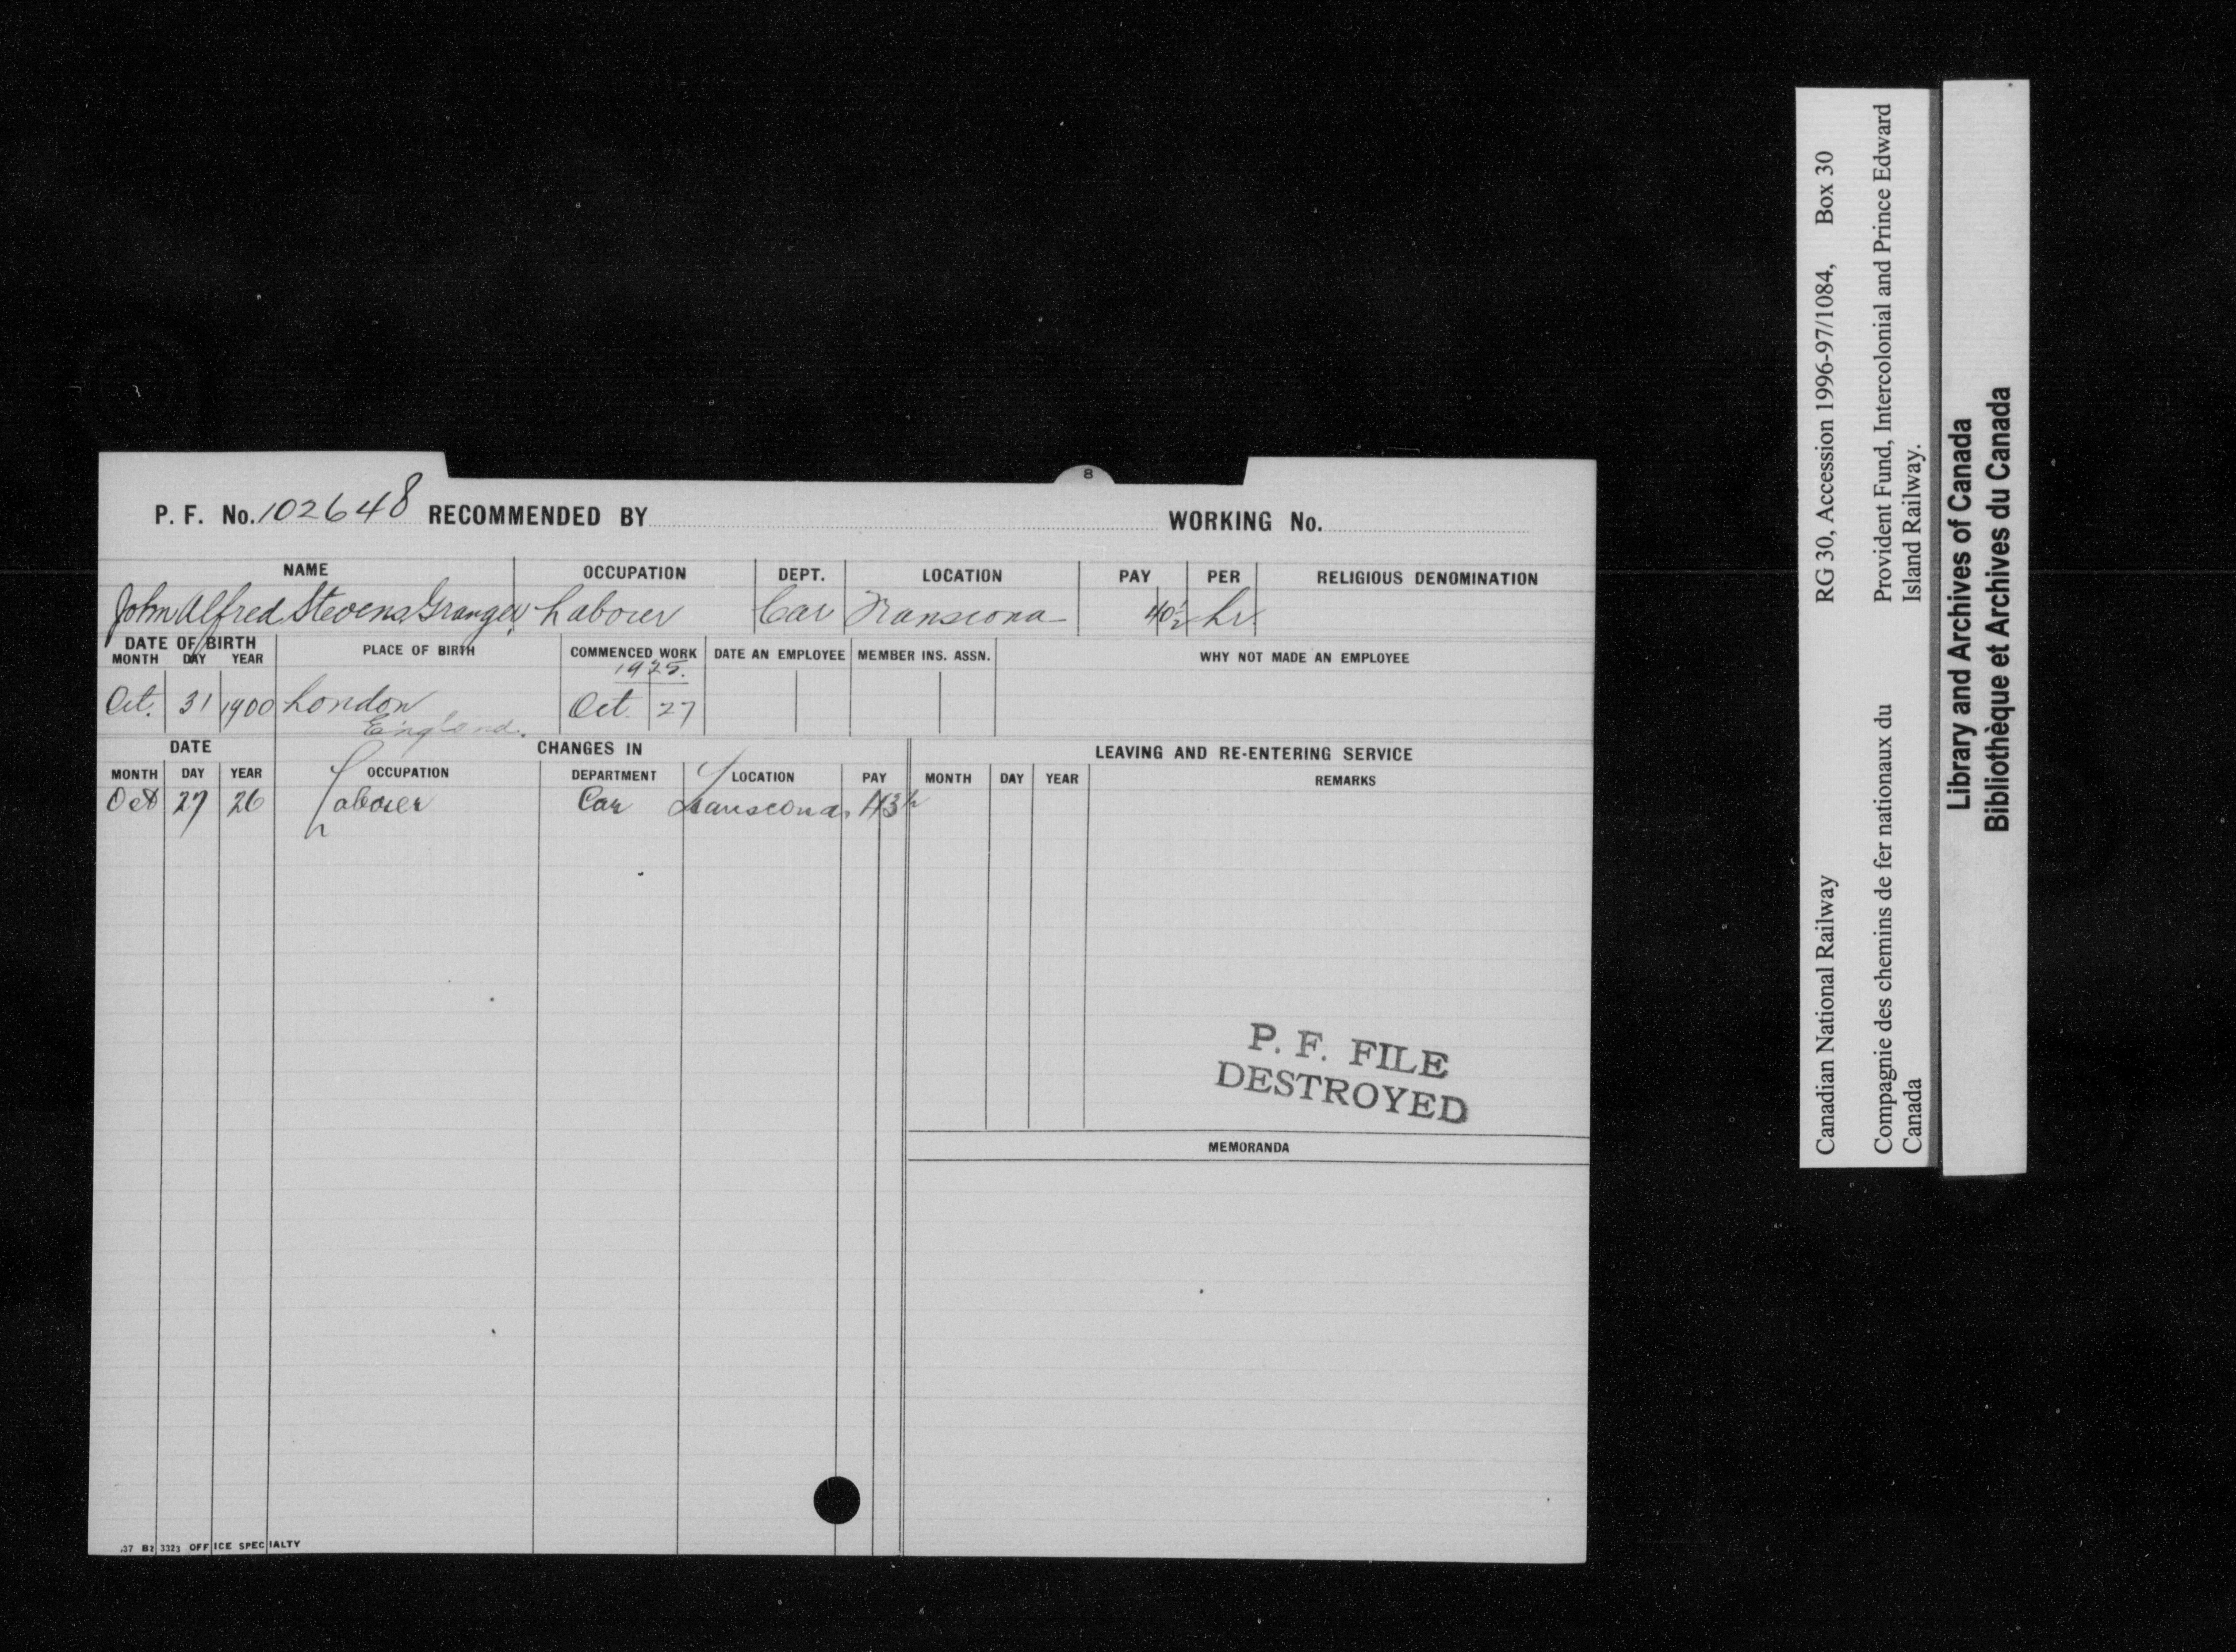 8
P. F. No. 102648 RECOMMENDED BY WORKING No.
NAME OCCUPATION DEPT. LOCATION PAY PER RELIGIOUS DENOMINATION
John Alfred Stevens Granger Labourer Car Transcona 40½ hr.
DATE OF BIRTH PLACE OF BIRTH COMMENCED WORK DATE AN EMPLOYEE MEMBER INS. ASSN. WHY NOT MADE AN EMPLOYEE
MONTH DAY YEAR
1925.
Oct. 31 1900 London Oct. 27
England.
DATE CHANGES IN LEAVING AND RE-ENTERING SERVICE
MONTH DAY YEAR OCCUPATION DEPARTMENT LOCATION PAY MONTH DAY YEAR REMARKS
Oct 27 26 Labourer Car Transcona 43 h
P. F. FILE
DESTROYED
MEMORANDA
3323 OFFICE SPECIALTY
Canadian National Railway RG 30, Accession 1996-97/1084, Box 30
Compagnie des chemins de fer nationaux du Provident Fund, Intercolonial and Prince Edward
Canada Island Railway.
Library and Archives of Canada
Bibliothèque et Archives du Canada